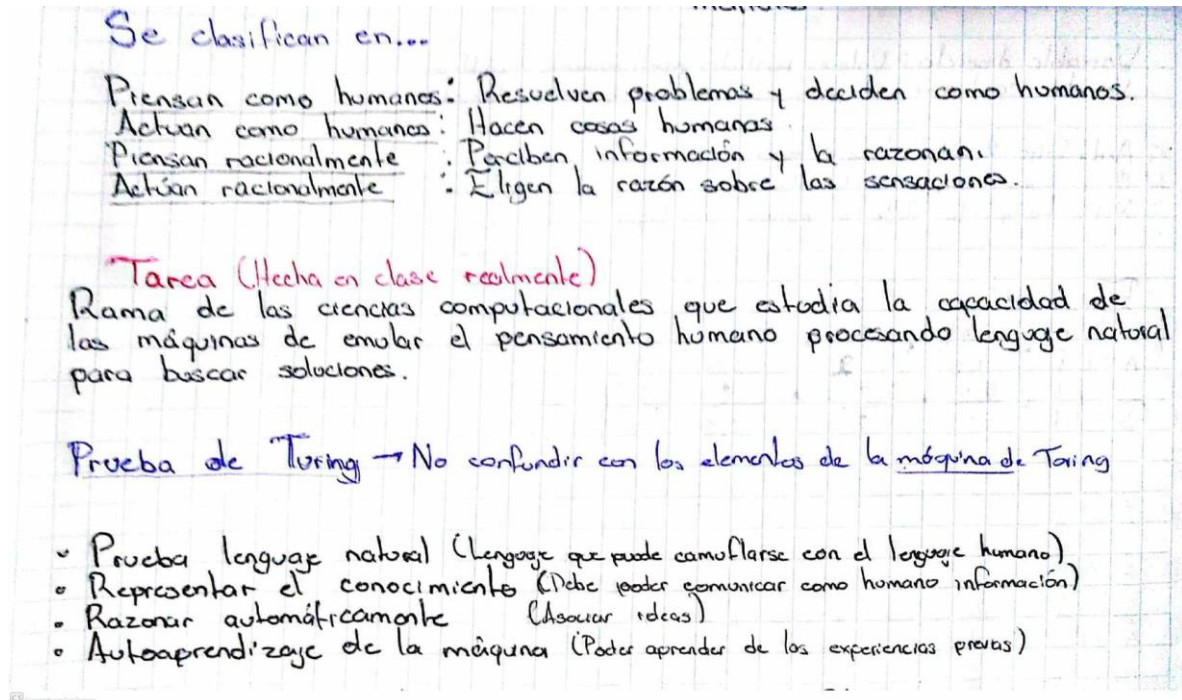 Se clasifican en...
Piensan como humanos: Resuelven problemas y deciden como humanos.
Actuan como humanos: Hacen cosas humanas
Piensan racionalmente : Perciben información y la razonan.
Actúan racionalmente : Eligen la razón sobre las sensaciones.
Tarea (Hecha en clase realmente)
Rama de las ciencias computacionales que estudia la capacidad de
las máquinas de emular el pensamiento humano procesando lenguaje natural
para buscar soluciones.
Prueba de Turing → No confundir con los elementos de la máquina de Turing
• Prueba lenguaje natural (Lenguaje que puede camuflarse con el lenguaje humano)
• Representar el conocimiento (Debe poder comunicar como humano información)
• Razonar automáticamente (Asociar ideas)
• Autoaprendizaje de la máquina (Poder aprender de las experiencias previas)